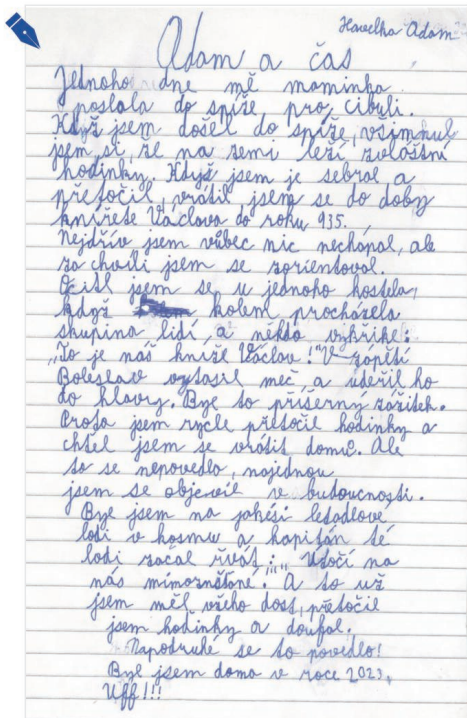 Havelka Adam
Adam a čas
Jednoho dne mě maminka
poslala do spíže pro cibuli.
Když jsem došel do spíže, všimnul
jsem si, že na zemi leží zvláštní
hodinky. Když jsem je sebral a
přetočil, vrátil jsem se do doby
knížete Václava do roku 935.
Nejdřív jsem vůbec nic nechápal, ale
za chvíli jsem se zorientoval.
Ocitl jsem se u jednoho kostela,
když kolem procházela
skupina lidí, a někdo vykřikl:
„To je náš kníže Václav!" V zápětí
Boleslav vytasil meč a udeřil ho
do hlavy. Byl to příšerný zážitek.
Proto jsem rycle přetočil hodinky a
chtěl jsem se vrátit domů. Ale
to se nepovedlo, najednou
jsem se objevil v budoucnosti.
Byl jsem na jakési letadlové
lodi v kosmu a kapitán té
lodi začal řvát: „Útočí na
nás mimozmšťané." A to už
jsem měl všeho dost, přetočil
jsem hodinky a doufal.
Napodruhé se to povedlo!
Byl jsem doma v roce 2023.
Uff!!!